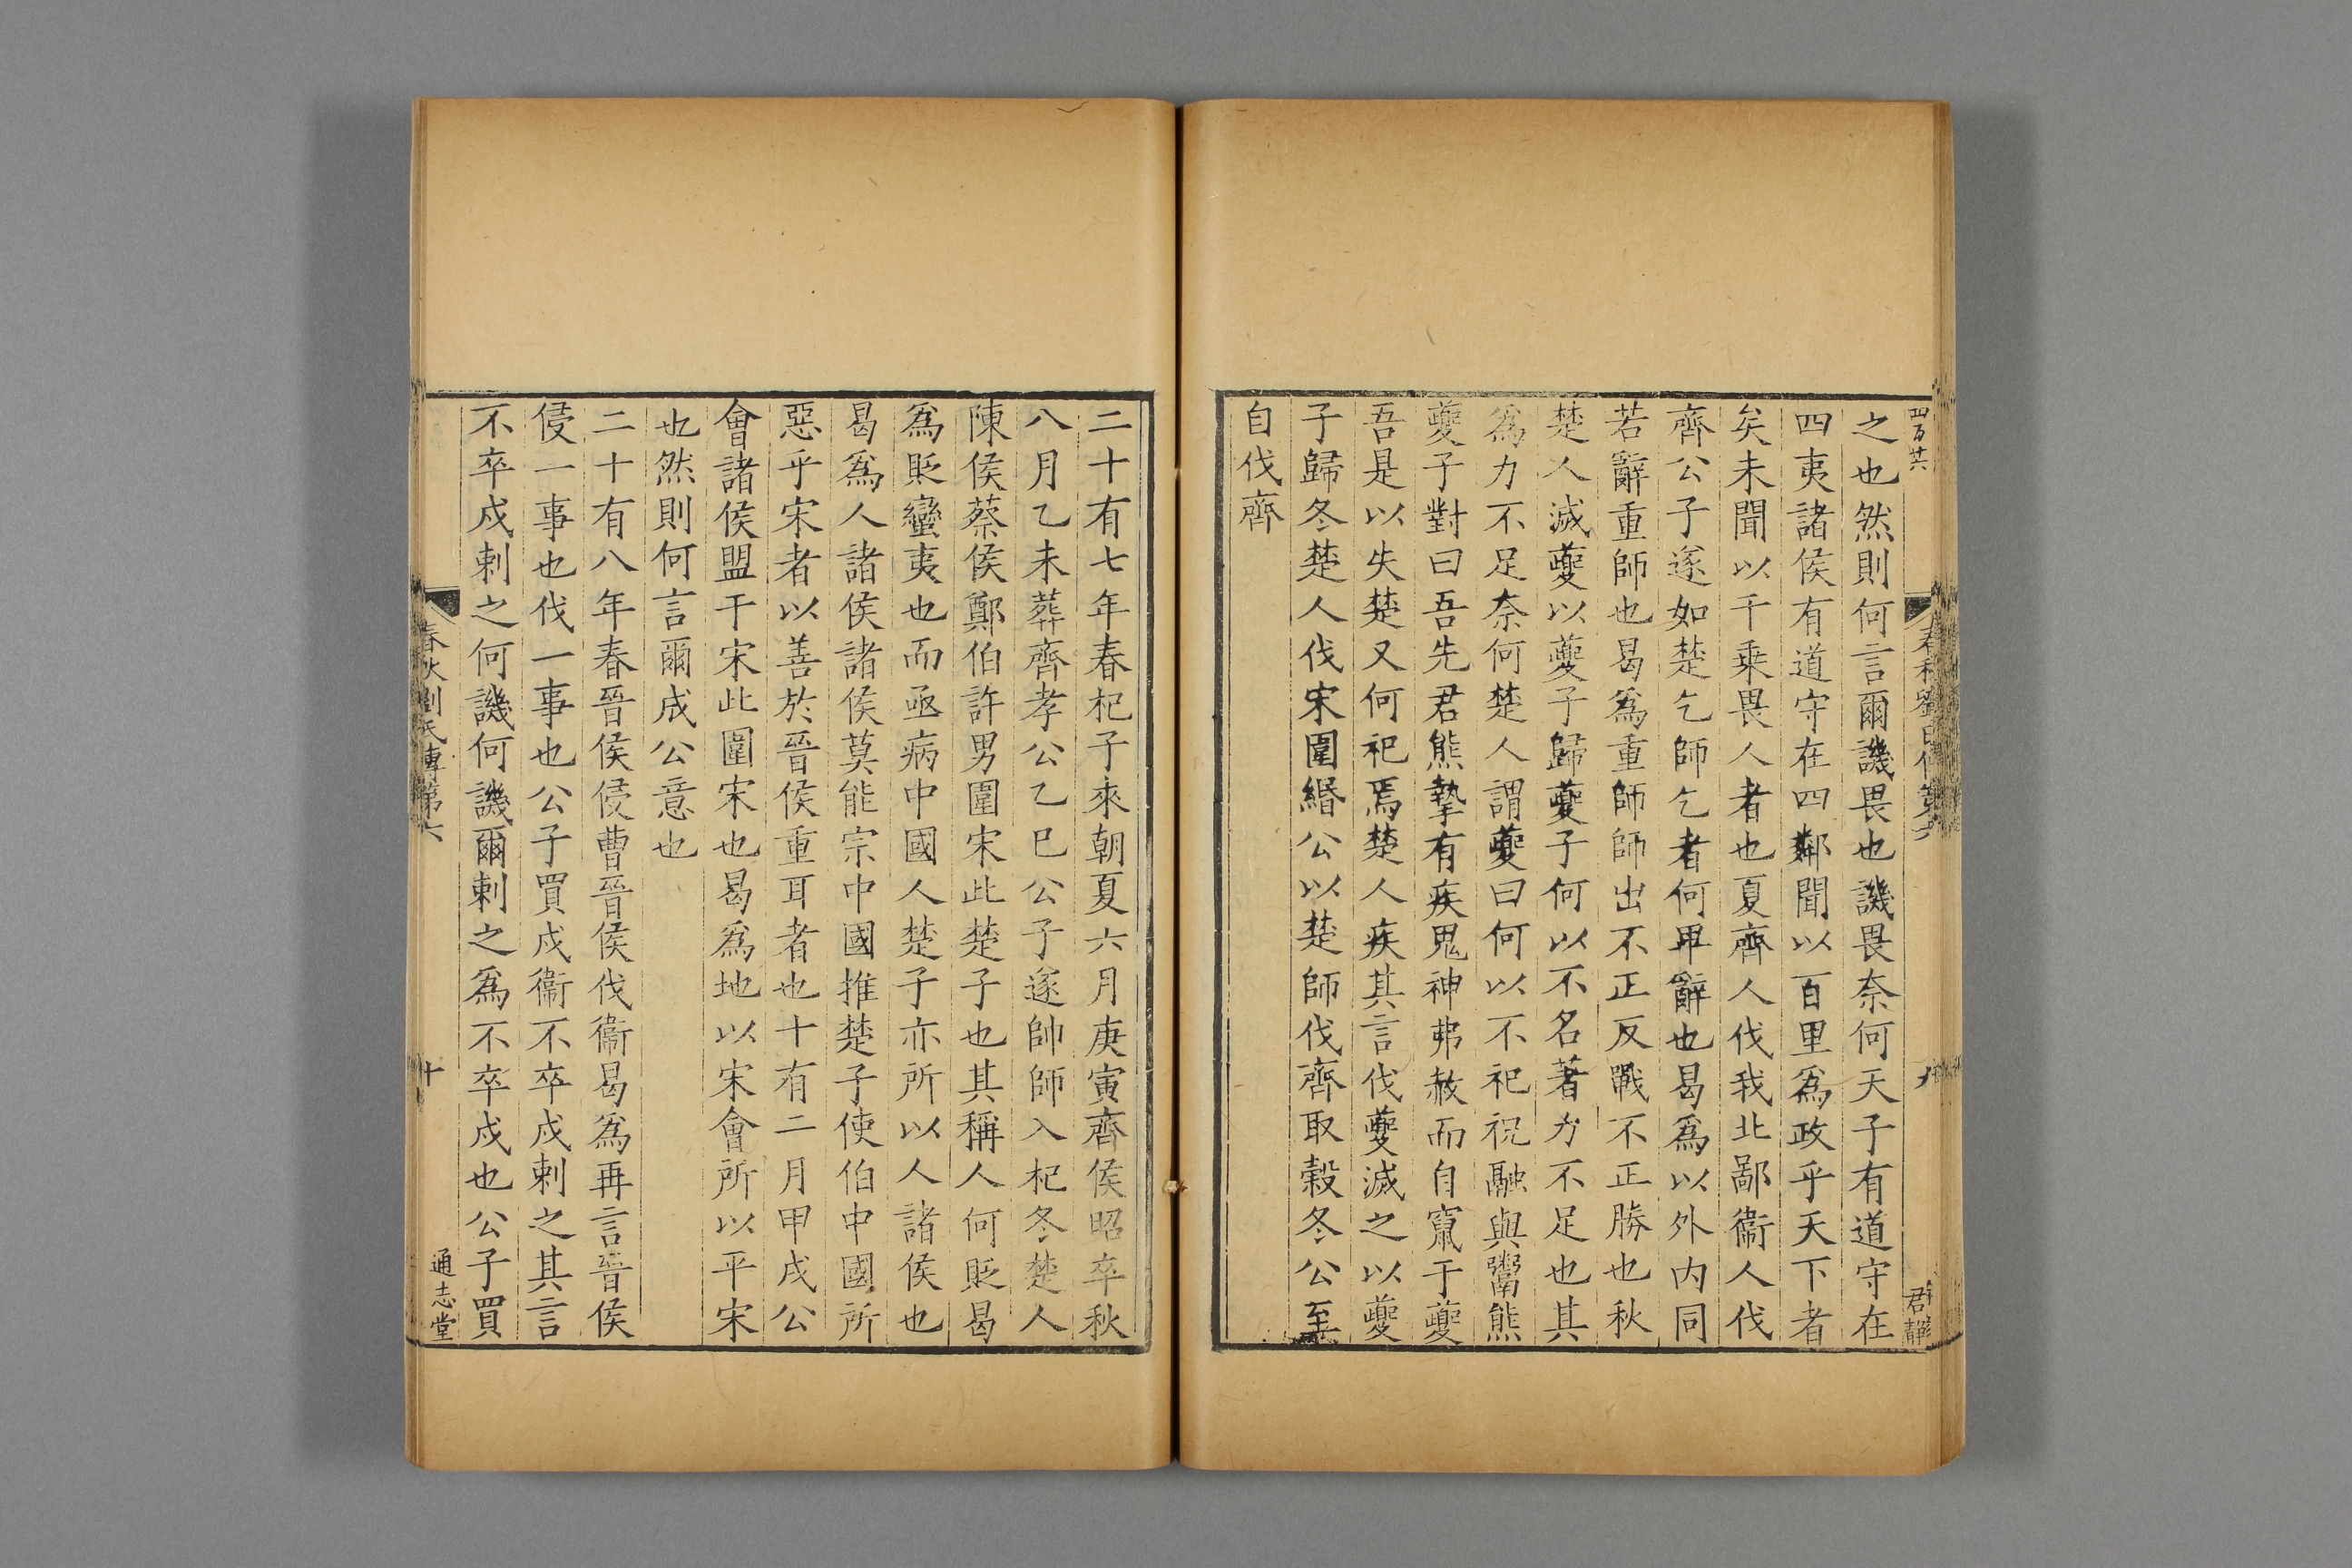 四百廿六
之也然則何言爾譏畏也譏畏奈何天子有道守在
四夷諸侯有道守在四鄰聞以百里爲政乎天下者
矣未聞以千乗畏人者也夏齊人伐我北鄙衞人伐
齊公子遂如楚乞師乞者何卑辭也曷爲以外内同
若辭重師也曷爲重師師出不正反戰不正勝也秋
楚人滅夔以夔子歸夔子何以不名著力不足也其
爲力不足奈何楚人謂夔曰何以不祀祝融與鬻熊
夔子對曰吾先君熊摯有疾鬼神弗赦而自竄于夔
吾是以失楚又何祀焉楚人疾其言伐夔滅之以夔
子歸冬楚人伐宋圍緡公以楚師伐齊取榖冬公至
自伐齊
春秋劉氏傳第六
九
君靜
二十有七年春杞子來朝夏六月庚寅齊侯昭卒秋
八月乙未葬齊孝公乙巳公子遂帥師入杞冬楚人
陳侯蔡侯鄭伯許男圍宋此楚子也其稱人何貶曷
爲貶蠻夷也而亟病中國人楚子亦所以人諸侯也
曷爲人諸侯諸侯莫能宗中國推楚子使伯中國所
惡乎宋者以善於晉侯重耳者也十有二月甲戌公
會諸侯盟于宋此圍宋也曷爲地以宋會所以平宋
也然則何言爾成公意也
二十有八年春晉侯侵曹晉侯伐衞曷爲再言晉侯
侵一事也伐一事也公子買戍衞不卒戍刺之其言
不卒戍刺之何譏何譏爾刺之爲不卒戍也公子買
春秋劉氏傳第六
十
通志堂